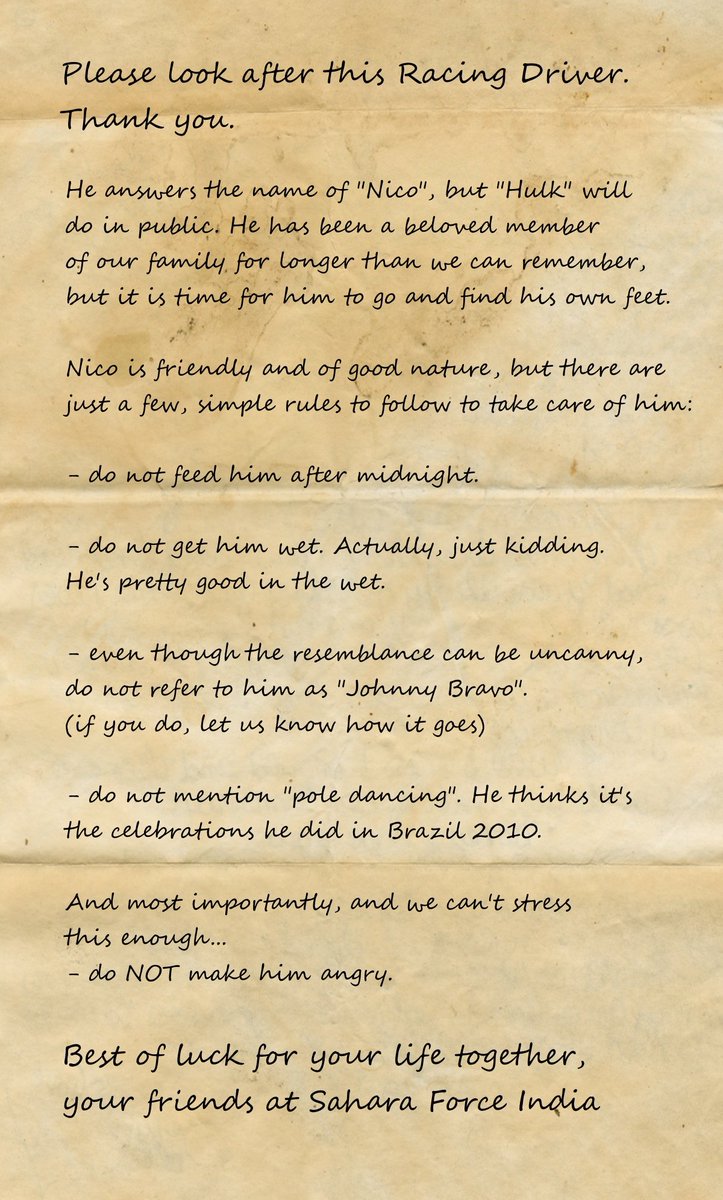 Please look after this Racing Driver.
Thank you.
He answers the name of "Nico", but "Hulk" will
do in public. He has been a beloved member
of our family for longer than we can remember,
but it is time for him to go and find his own feet.
Nico is friendly and of good nature, but there are
just a few, simple rules to follow to take care of him:
- do not feed him after midnight.
- do not get him wet. Actually, just kidding.
He's pretty good in the wet.
- even though the resemblance can be uncanny,
do not refer to him as "Johnny Bravo".
(if you do, let us know how it goes)
- do not mention "pole dancing". He thinks it's
the celebrations he did in Brazil 2010.
And most importantly, and we can't stress
this enough...
- do NOT make him angry.
Best of luck for your life together,
your friends at Sahara Force India